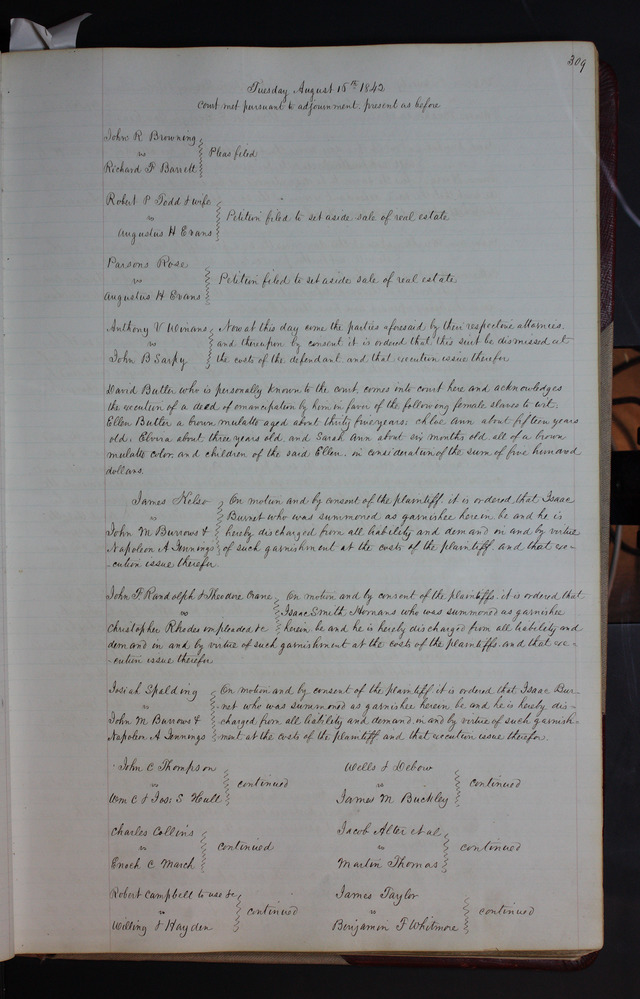 309
Tuesday August 16th 1842
Court met pursuant to adjournment. present as before
John R Browning
vs
Richard F Barrett
Pleas filed
Robert P Todd & wife
vs
Augustus H Evans
Petition filed to set aside sale of real estate
Parsons Rose
vs
Augustus H Evans
Petition filed to set aside sale of real estate
Anthony V Winans
vs
John B Sarpy
Now at this day come the parties aforesaid by their respective attornies.
and thereupon by consent it is ordered that this suit be dismissed at
the costs of the defendant and that execution issue therefor
David Butler who is personally known to the court, comes into court here and acknowledges
the execution of a deed of emancipation by him in favor of the following female slaves to wit.
Ellen Butler a brown mulatto aged about thirty five years; chloe Ann about fifteen years
old; Elvira about three years old and Sarah Ann about six months old all of a brown
mulatto color, and children of the said Ellen, in consideration of the sum of five hundred
dollars.
James Kelso
vs
John M Burrows &
Napoleon A Jennings
On motion and by consent of the plaintiff, it is ordered, that Isaac
Burnet who was summoned as garnishee herein be and he is
hereby discharged from all liability and demand in and by virtue
of such garnishment at the costs of the plaintiff, and that exe-
-cution issue therefor
John F Randolph & Theodore Crane
vs
Christopher Rhodes impleaded &c
On motion and by consent of the plaintiffs it is ordered that
Isaac Smith Homans who was summoned as garnishee
herein be and he is hereby discharged from all liability and
demand in and by virtue of such garnishment at the costs of the plaintiffs. and that exe-
-cution issue therefor
Josiah Spalding
vs
John M Burrows &
Napoleon A Jennings
On motion and by consent of the plaintiff it is ordered that Isaac Bur-
net who was summoned as garnishee herein be and he is hereby dis-
charged from all liability and demand, in and by virtue of such garnish-
ment, at the costs of the plaintiff and that execution issue therefor.
John C Thompson
vs
Wm C & Jos: S Hull
continued
Wells & Debow
vs
James M Buckley
continued
Charles Collins
vs
Enoch C March
continued
Jacob Alter et al
vs
Martin Thomas
continued
Robert Campbell to use &c
vs
Welling & Hayden
continued
James Taylor
vs
Benjamin F Whitmore
continued